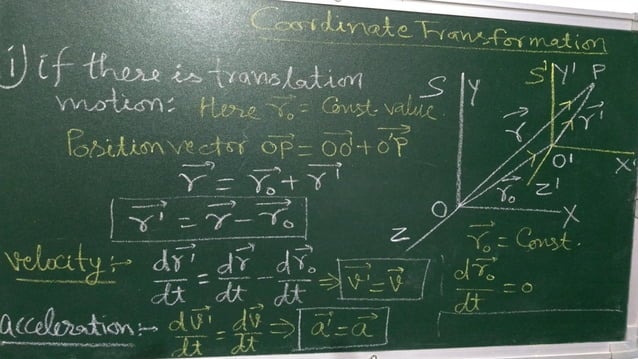 Coordinate Transformation
i) if there is translation
motion: Here r⃗₀ = Const value.
Position vector OP⃗ = OO'⃗ + O'P⃗
r⃗ = r⃗₀ + r⃗'
r⃗' = r⃗ - r⃗₀
velocity :- dr⃗'/dt = dr⃗/dt - dr⃗₀/dt ⇒ v⃗' = v⃗
acceleration :- dv⃗'/dt = dv⃗/dt ⇒ a⃗' = a⃗
S Y S' Y' P
r⃗ r⃗'
O' X'
r⃗₀ Z'
O X
Z
r⃗₀ = Const.
dr⃗₀/dt = 0